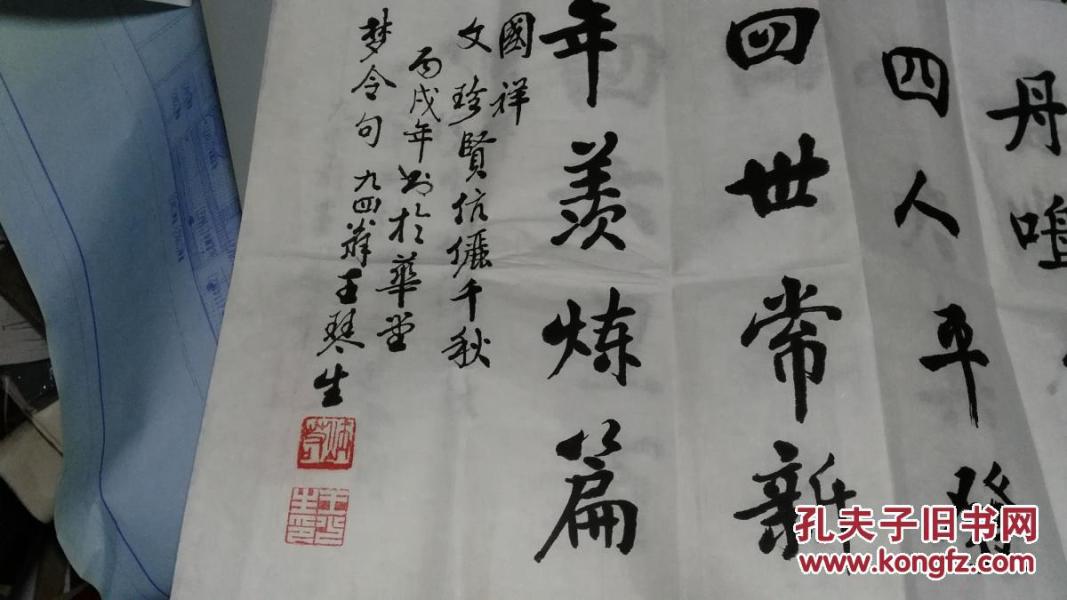 丹
四人平
四世常新
年羡炼篇
國祥
文珍賢伉儷千秋
丙戌年書於華堂
梦令句 九四 王琴生
孔夫子旧书网
www.kongfz.com